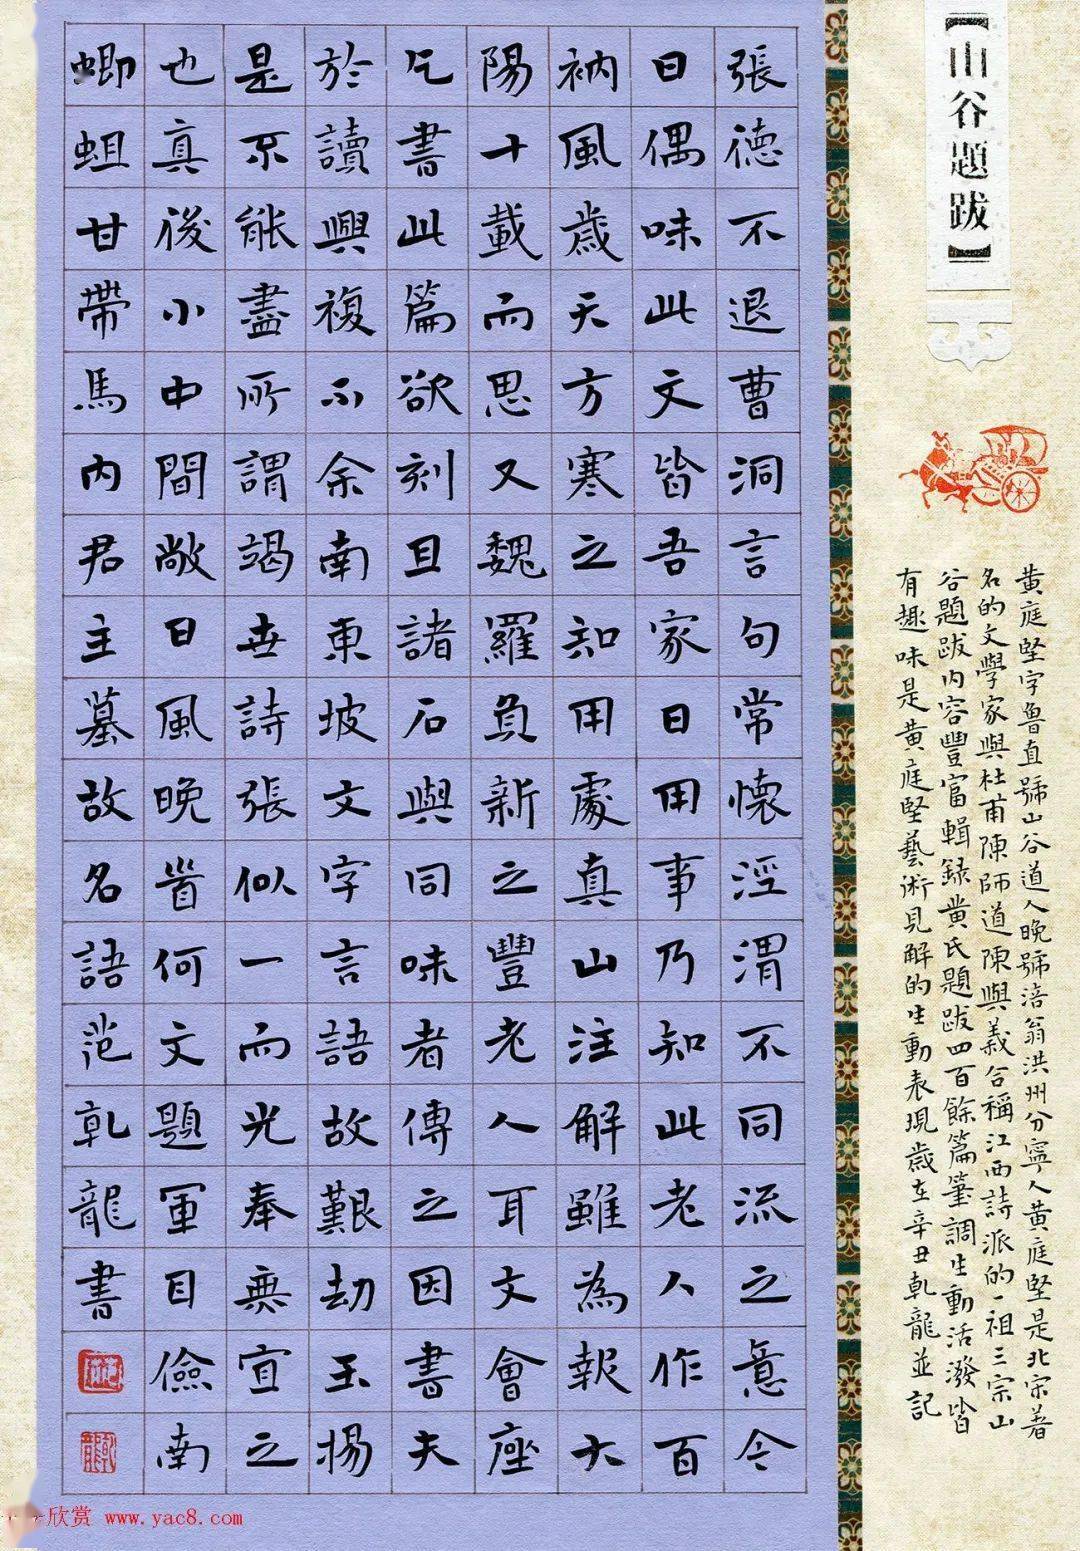 【山谷題跋】
張德不退曹洞言句常懷涇渭不同流之意今
日偶味此文皆吾家日用事乃知此老人作百
衲風歲天方寒之知用處真山注解雖為報大
陽十載而思又魏羅負新之豐老人耳文會座
乞書此篇欲刻且諸石與同味者傳之因書夫
於讀興複不余南東坡文字言語故艱劫玉楊
是不能盡所謂竭世詩張似一而光奉無宜之
也真後小中間敞日風晚首何文題軍目儉南
蝍蛆甘帶馬內君主墓故名語范乾龍書
黃庭堅字魯直號山谷道人晚號涪翁洪州分寧人黃庭堅是北宋著
名的文學家與杜甫陳師道陳與義合稱江西詩派的一祖三宗山
谷題跋內容豐富輯録黃氏題跋四百餘篇筆調生動活潑皆
有趣味是黃庭堅藝術見解的生動表現歲在辛丑乾龍並記
欣赏 www.yac8.com